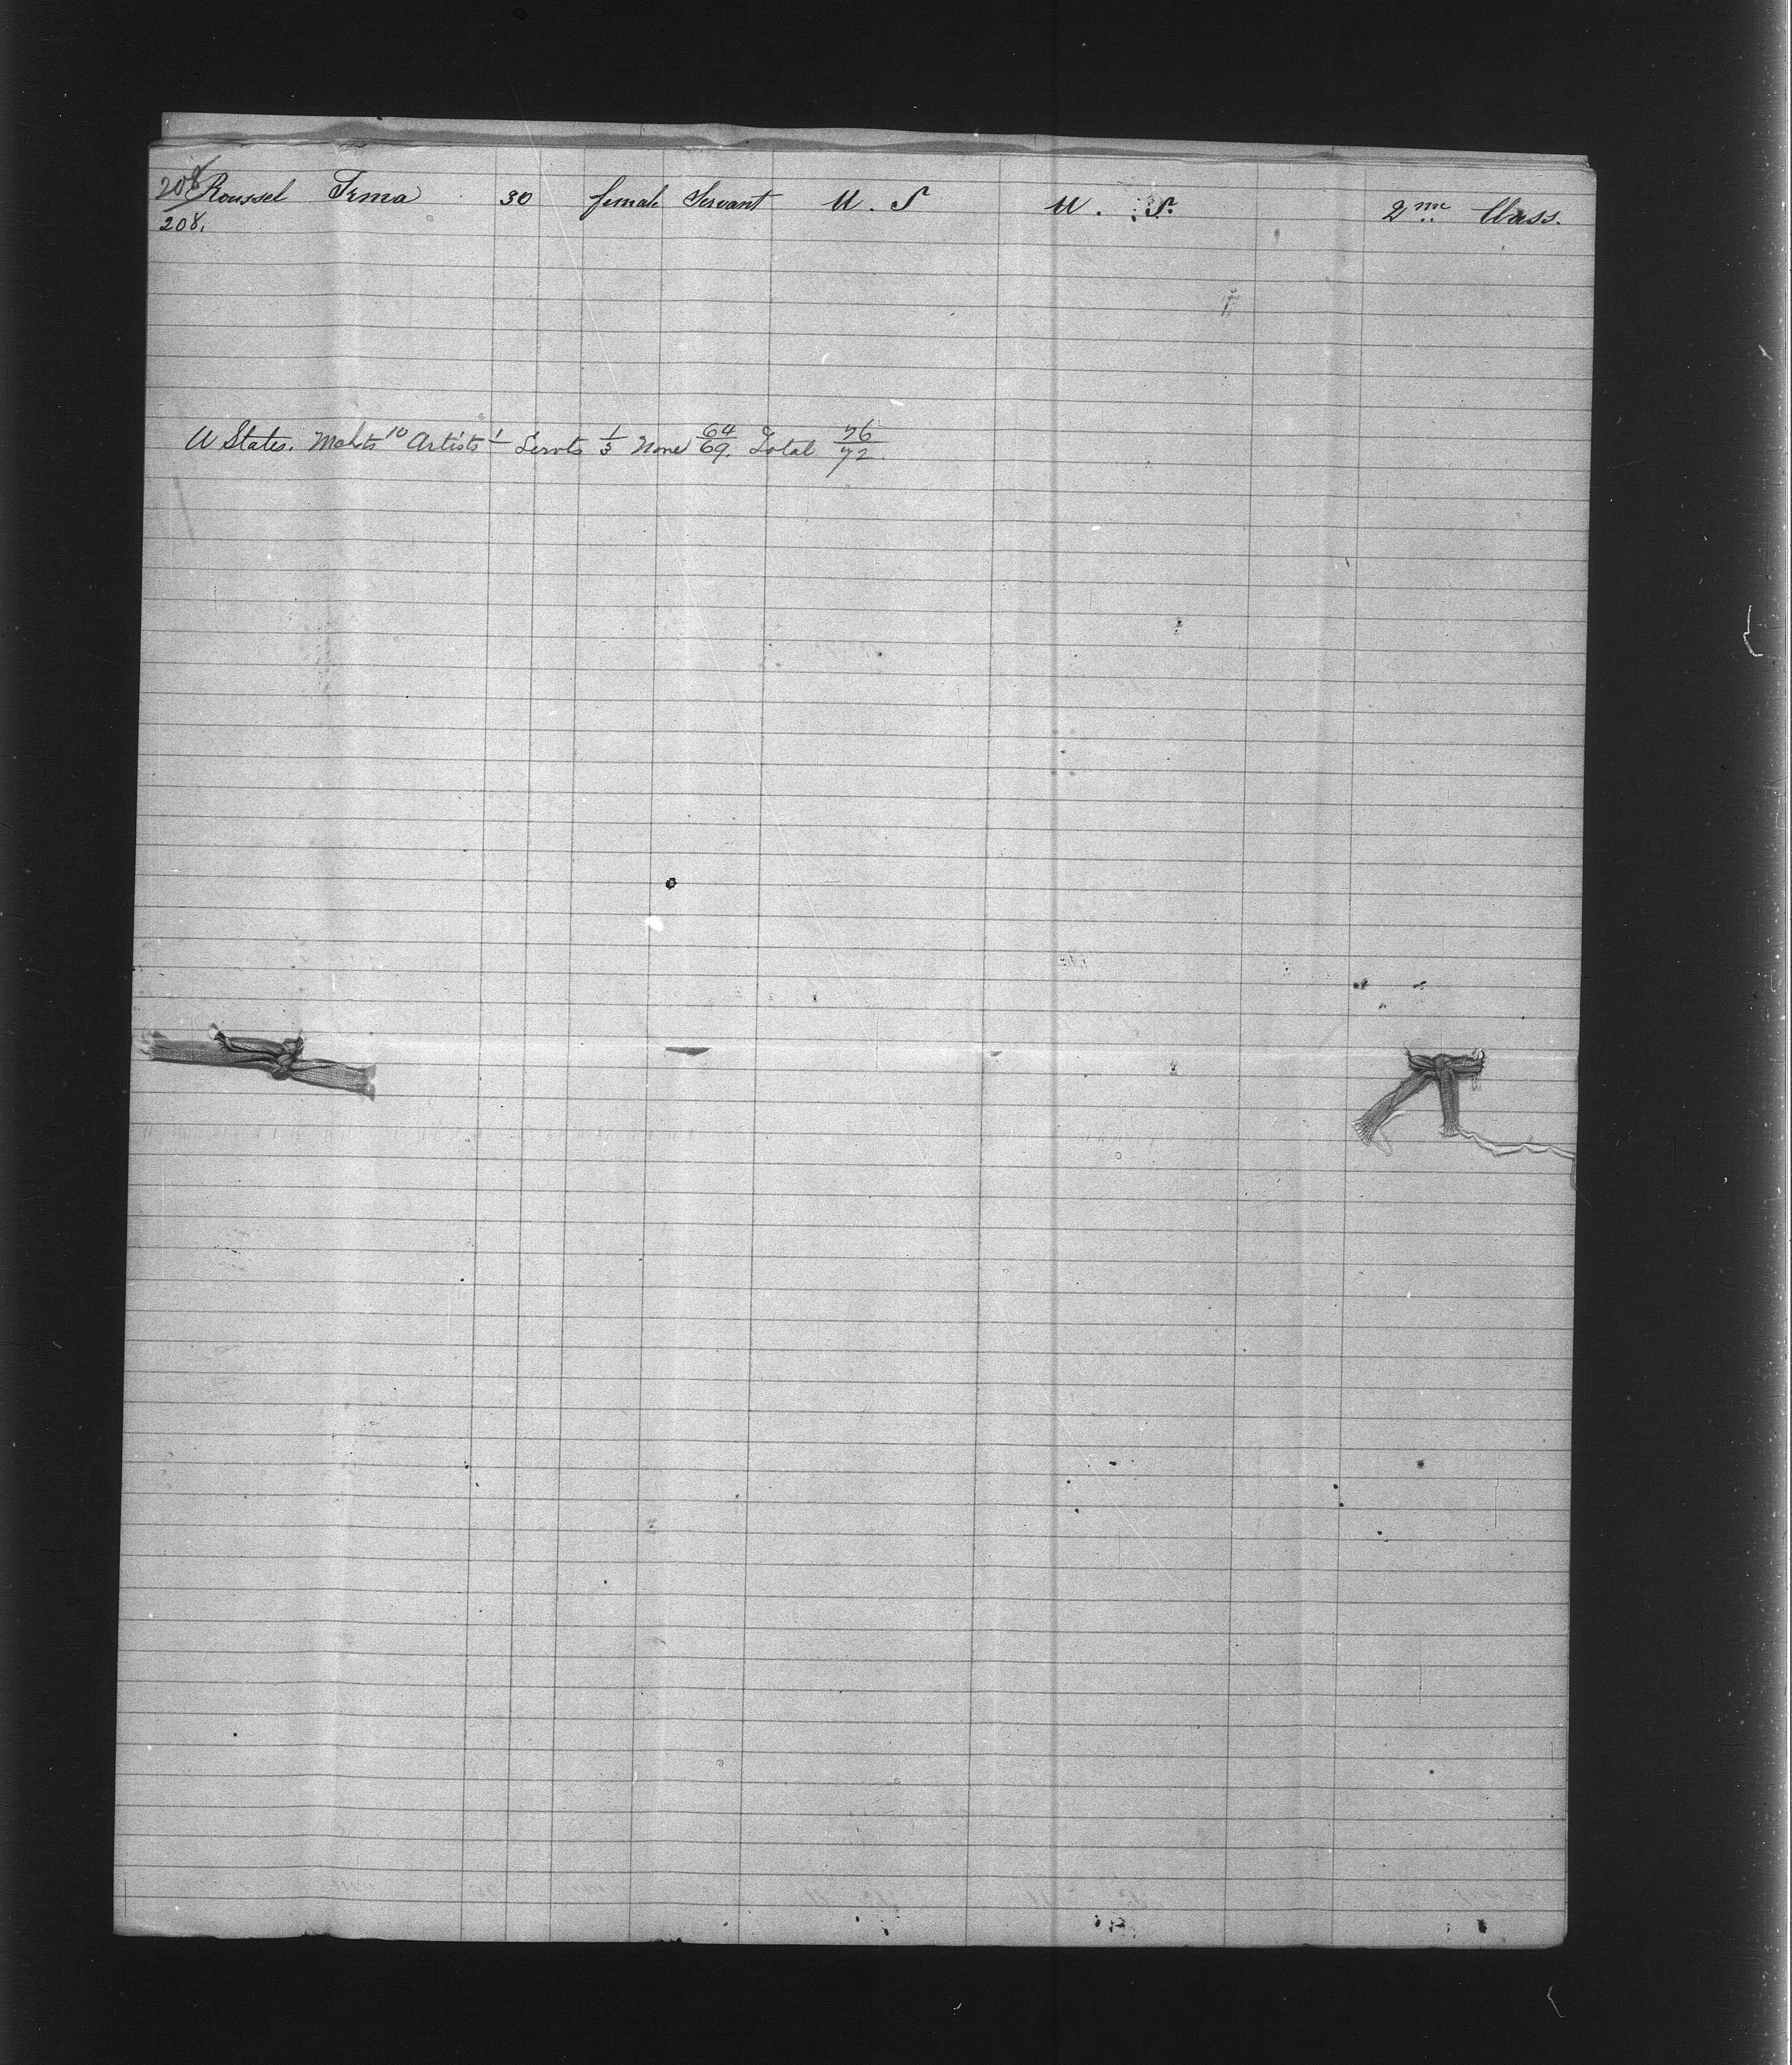 208 Roussel Irma 30 female Servant U. S U. S. 2me Class.
208.
U States. Mchts 10 Artists 1 Servts 1/3 None 64/69. Total 76/72.